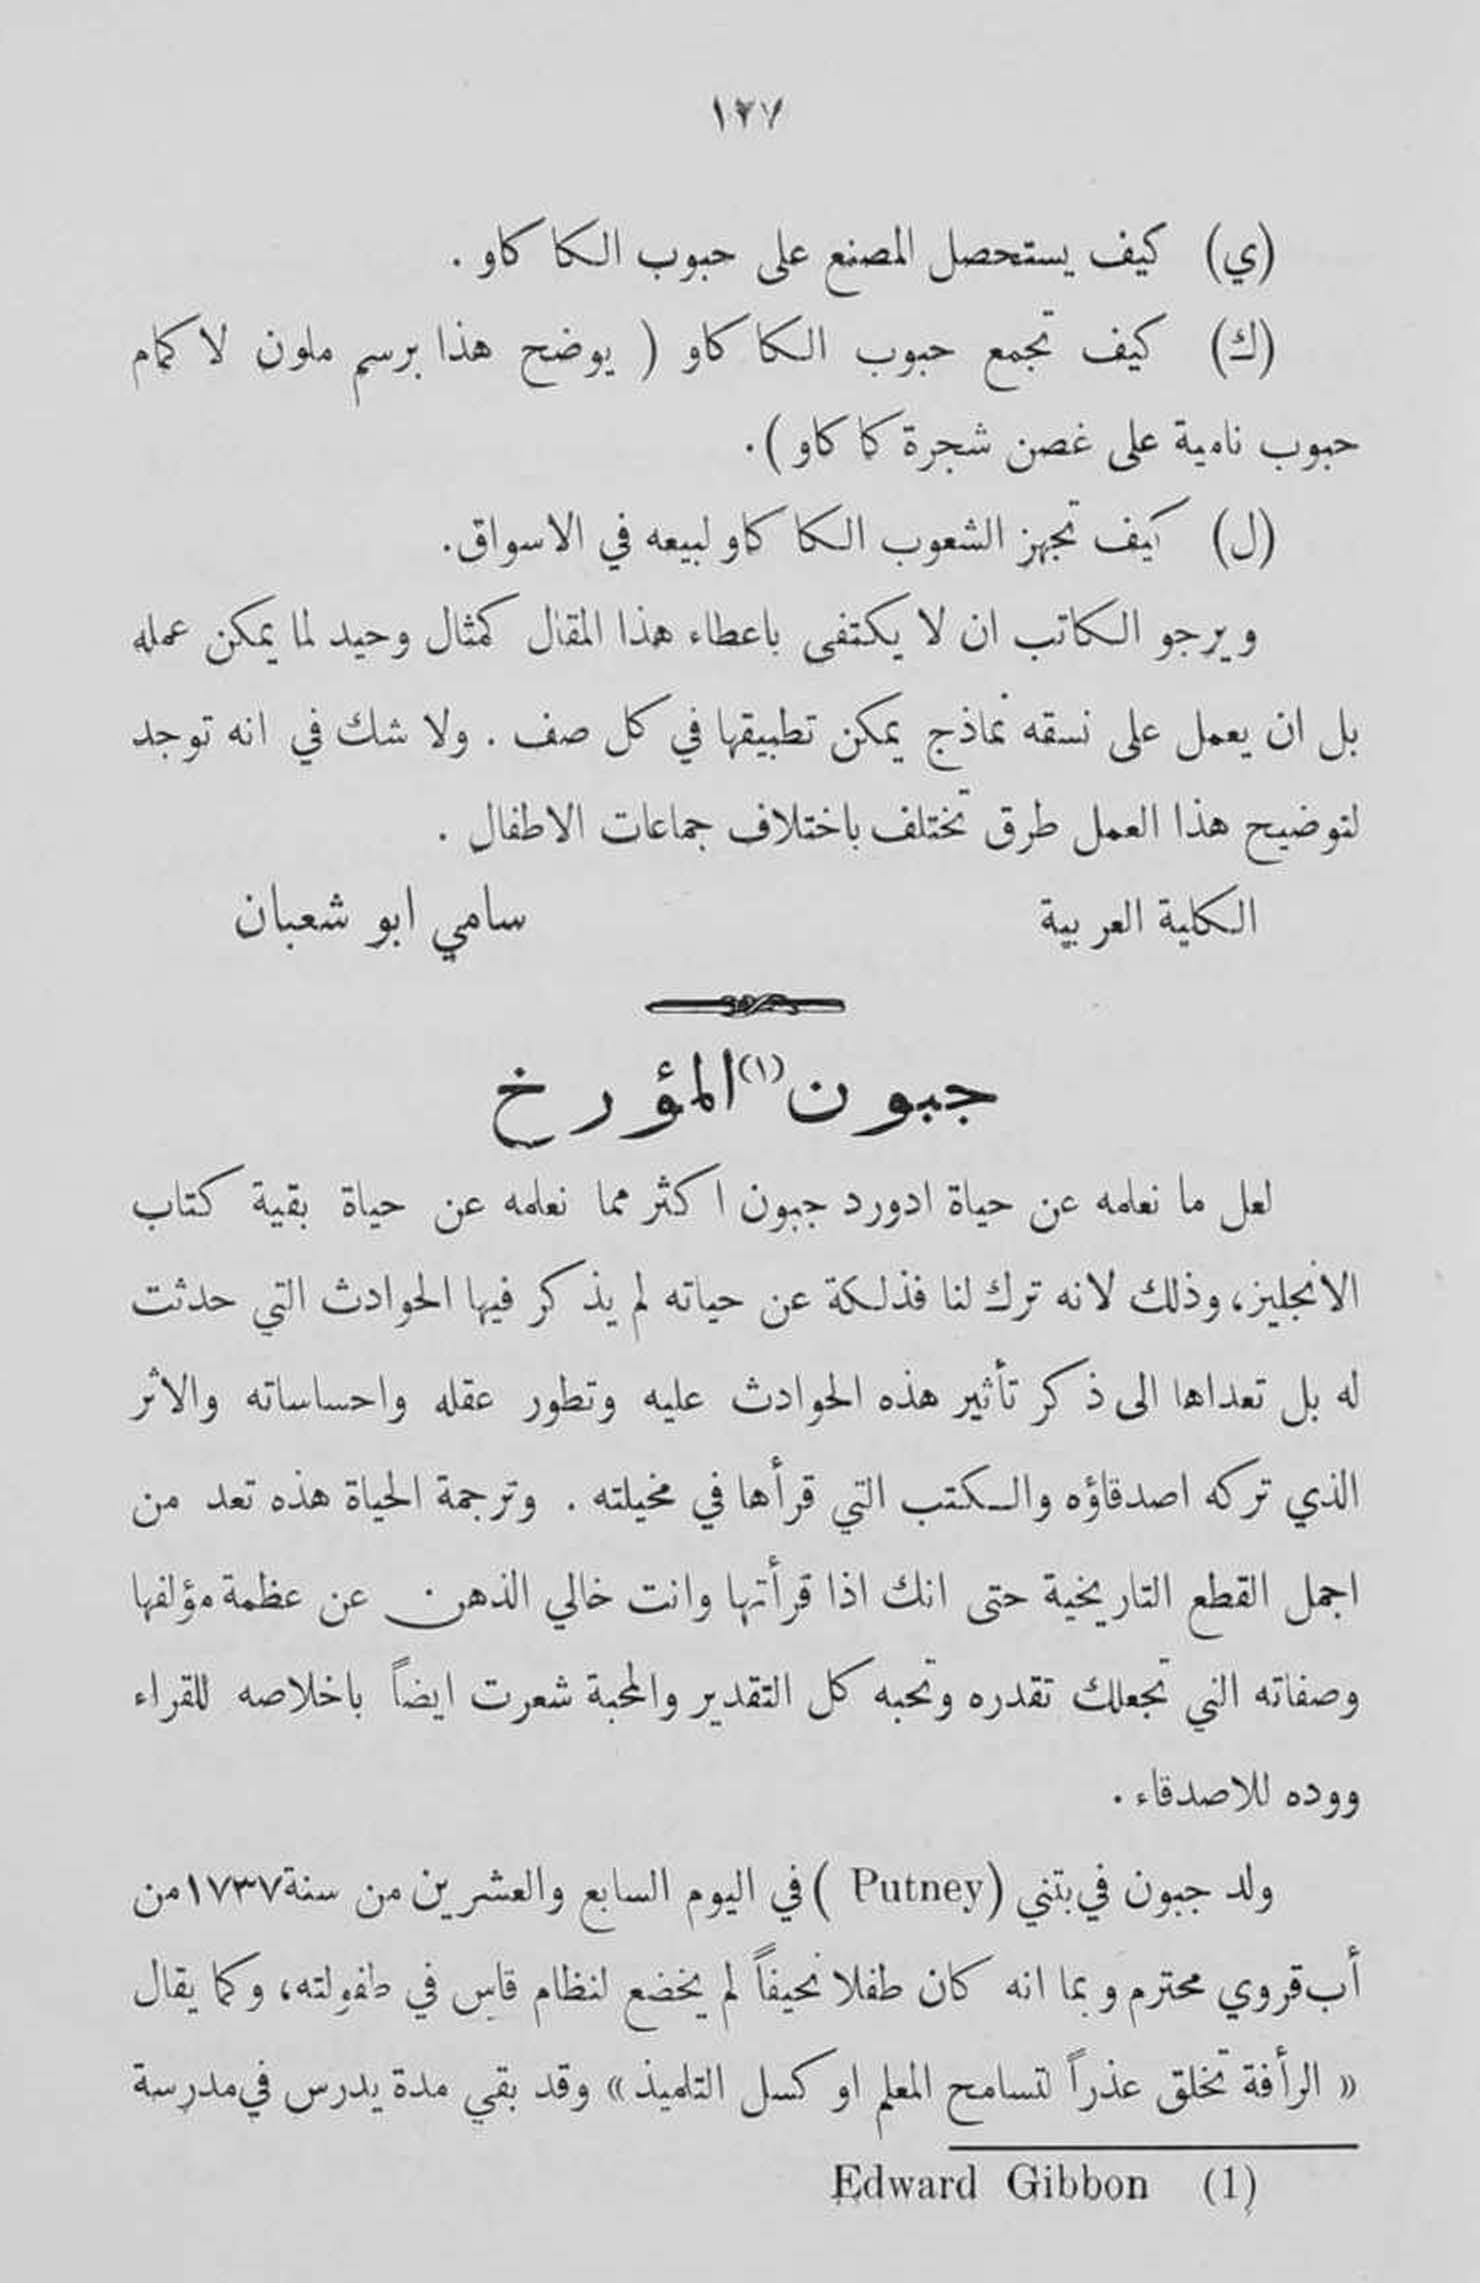 ١٢٧
(ي) كيف يستحصل المصنع على حبوب الكاكاو .
(ك) كيف تجمع حبوب الكاكاو ( يوضح هذا برسم ملون لاكمام
حبوب نامية على غصن شجرة كاكاو ) .
(ل) كيف تجهز الشعوب الكاكاو لبيعه في الاسواق .
ويرجو الكاتب ان لا يكتفى باعطاء هذا المقال كمثال وحيد لما يمكن عمله
بل ان يعمل على نسقه نماذج يمكن تطبيقها في كل صف . ولا شك في انه توجد
لتوضيح هذا العمل طرق تختلف باختلاف جماعات الاطفال .
الكلية العربية سامي ابو شعبان
جبون (١) المؤرخ
لعل ما نعلمه عن حياة ادورد جبون اكثر مما نعلمه عن حياة بقية كتاب
الانجليز، وذلك لانه ترك لنا فذلكة عن حياته لم يذكر فيها الحوادث التي حدثت
له بل تعداها الى ذكر تأثير هذه الحوادث عليه وتطور عقله واحساساته والاثر
الذي تركه اصدقاؤه والكتب التي قرأها في مخيلته . وترجمة الحياة هذه تعد من
اجمل القطع التاريخية حتى انك اذا قرأتها وانت خالي الذهن عن عظمة مؤلفها
وصفاته التي تجعلك تقدره وتحبه كل التقدير والمحبة شعرت ايضاً باخلاصه للقراء
ووده للاصدقاء .
ولد جبون في بتني (Putney) في اليوم السابع والعشرين من سنة ١٧٣٧ من
أب قروي محترم وبما انه كان طفلا نحيفاً لم يخضع لنظام قاس في طفولته، وكما يقال
« الرأفة تخلق عذراً لتسامح المعلم او كسل التلميذ » وقد بقي مدة يدرس في مدرسة
Edward Gibbon (1)